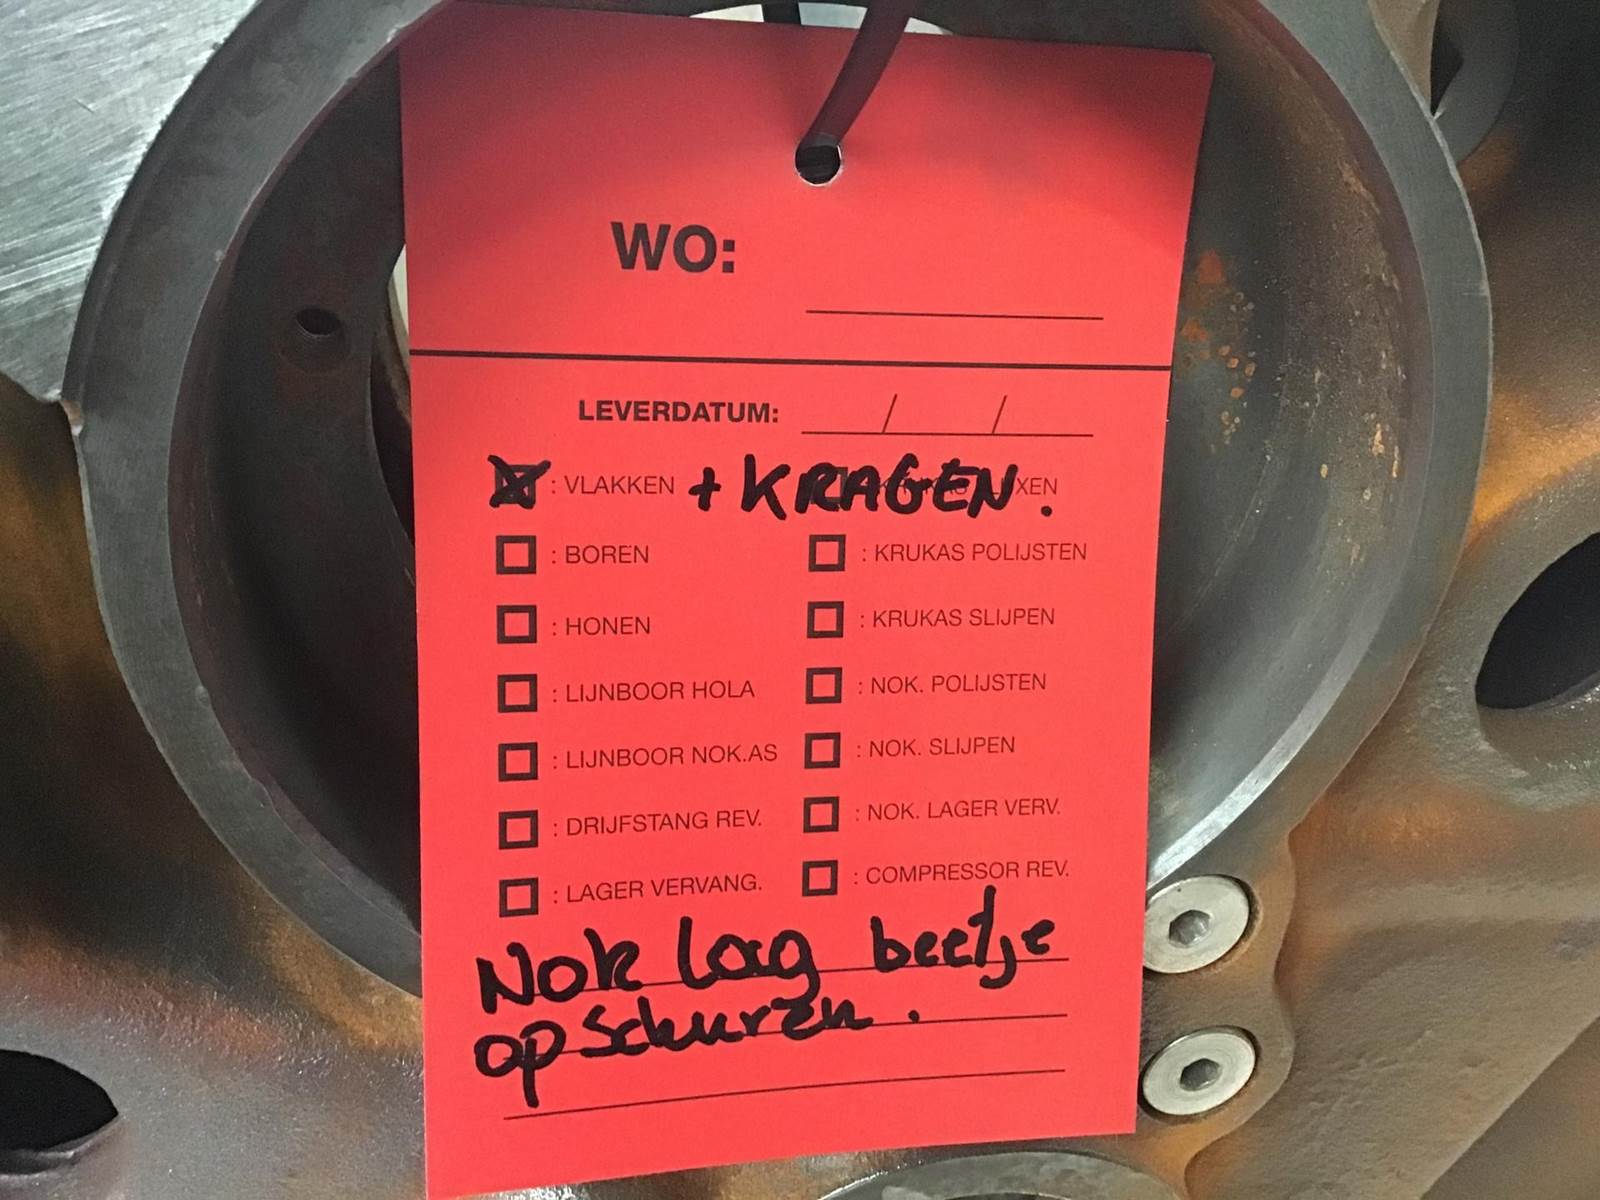 WO:
LEVERDATUM: / /
: VLAKKEN + KRAGEN. XEN
: BOREN : KRUKAS POLIJSTEN
: HONEN : KRUKAS SLIJPEN
: LIJNBOOR HOLA : NOK. POLIJSTEN
: LIJNBOOR NOK.AS : NOK. SLIJPEN
: DRIJFSTANG REV. : NOK. LAGER VERV.
: LAGER VERVANG. : COMPRESSOR REV.
Nok lag beetje
opschuren.